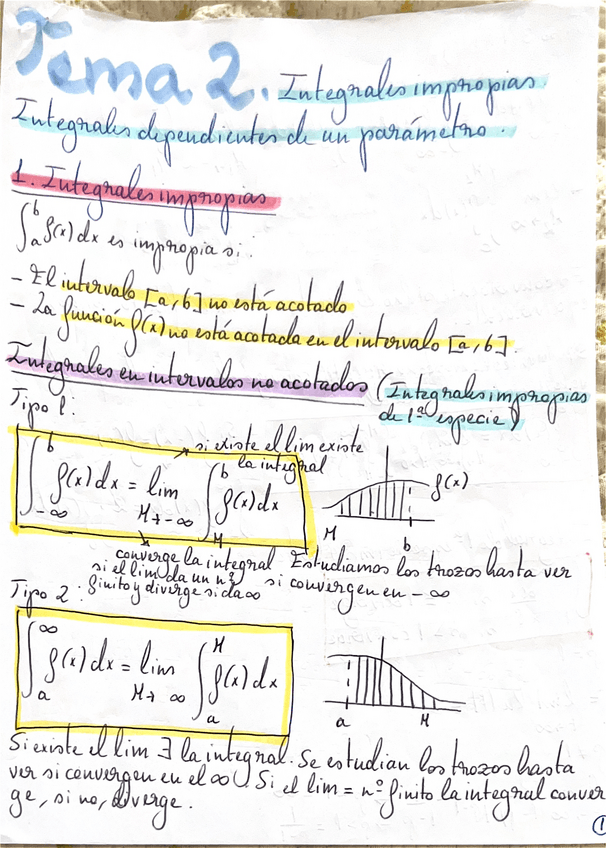 Tema 2. Integrales impropias.
Integrales dependientes de un parámetro.
1. Integrales impropias
∫_a^b f(x)dx es impropia si:
- El intervalo [a,b] no está acotado
- La función f(x) no está acotada en el intervalo [a,b].
Integrales en intervalos no acotados (Integrales impropias
de 1ª especie)
Tipo 1:
si existe el lim existe
la integral
∫_{-∞}^b f(x)dx = lim_{M→-∞} ∫_M^b f(x)dx
f(x)
M
b
converge la integral
si el lim da un nº
finito y diverge si da ∞
Estudiamos los trozos hasta ver
si convergen en -∞
Tipo 2:
∫_a^∞ f(x)dx = lim_{M→∞} ∫_a^M f(x)dx
a M
Si existe el lim ∃ la integral. Se estudian los trozos hasta
ver si convergen en el ∞. Si el lim = nº finito la integral conver
ge, si no, diverge.
1